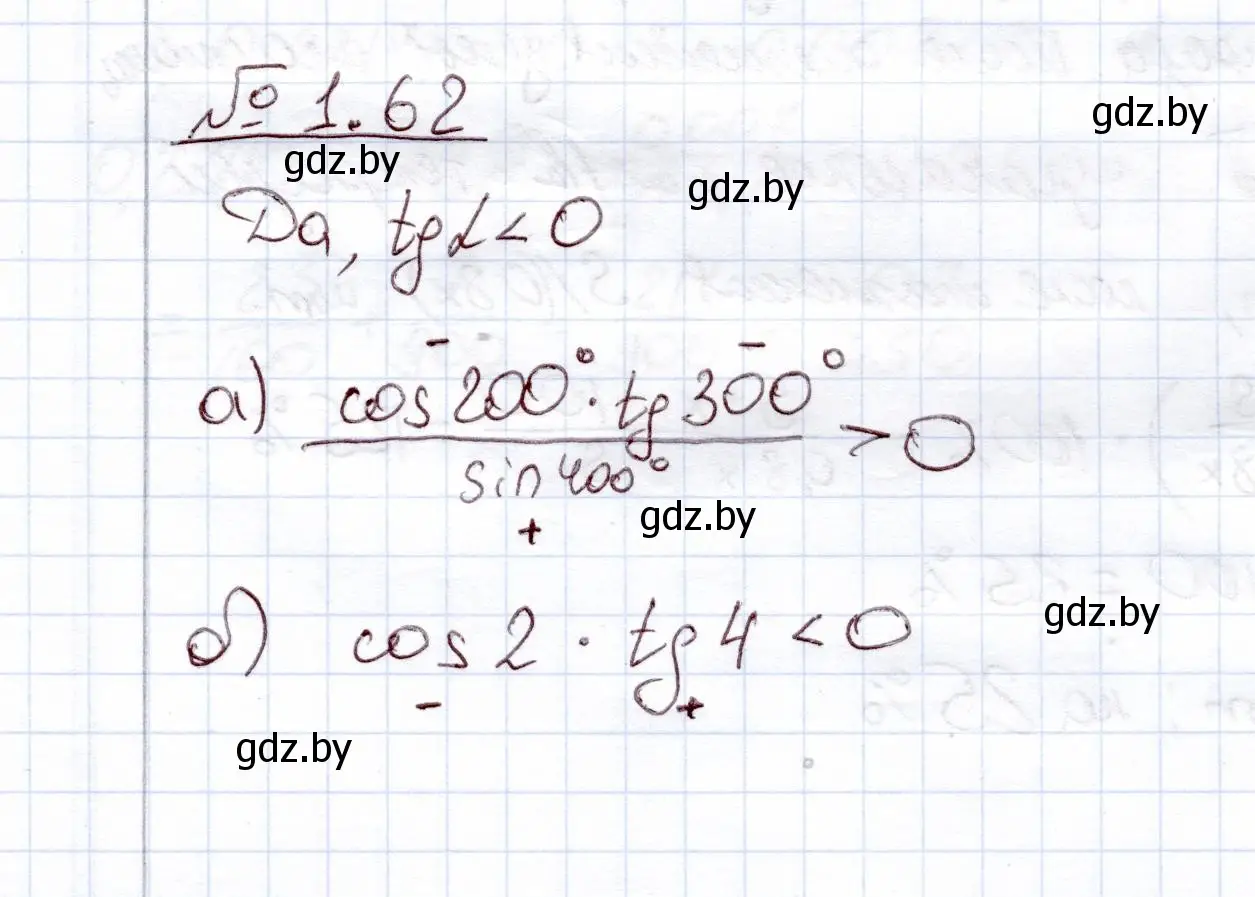 № 1.62
gdz.by
gdz.by
gdz.by
Да, tg α < 0
а) cos 200° · tg 300° / sin 400° > 0
- -
+
gdz.by
б) cos 2 · tg 4 < 0
- +
gdz.by
gdz.by